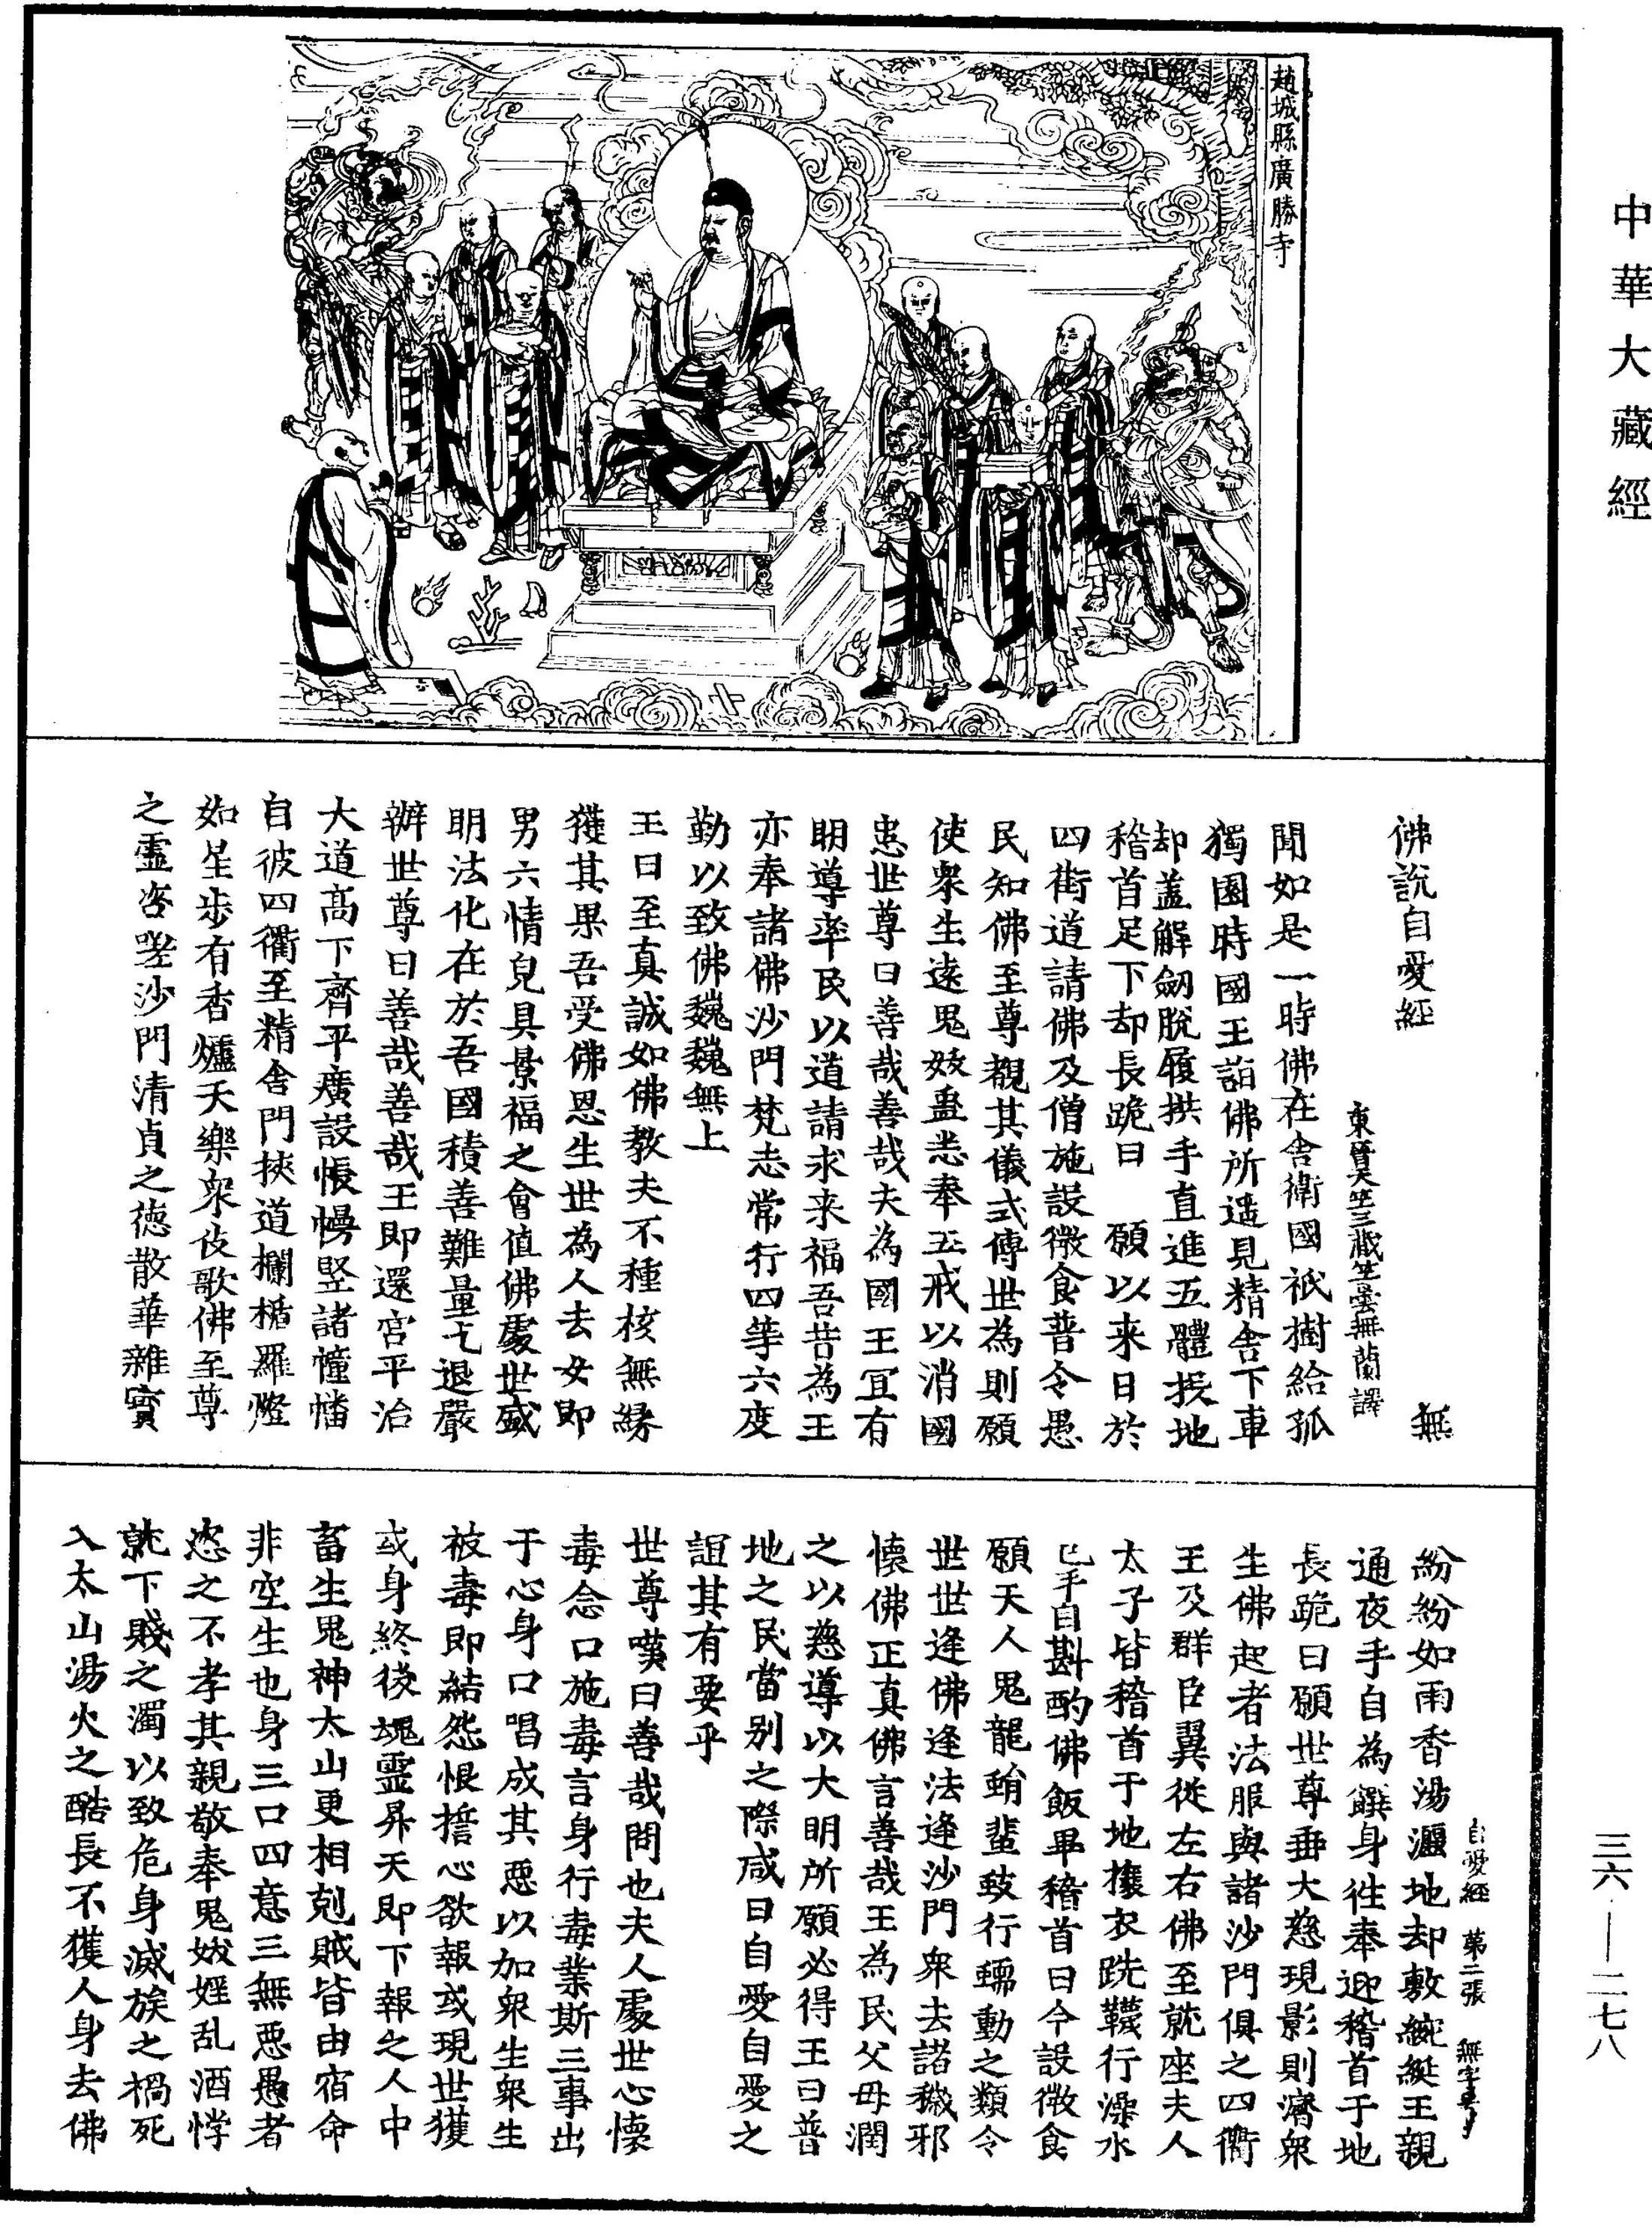 中華大藏經
趙城縣廣勝寺
佛說自愛經　無
東晉天竺三藏竺曇無蘭譯
聞如是一時佛在舍衛國祇樹給孤
獨園時國王詣佛所遥見精舍下車
却蓋解劒脫履拱手直進五體投地
稽首足下却長跪曰　願以来日於
四街道請佛及僧施設微食普令愚
民知佛至尊覩其儀式傳世為則願
使衆生遠鬼妖蠱悉奉五戒以消國
患世尊曰善哉善哉夫為國王宜有
明導率民以道請求来福吾昔為王
亦奉諸佛沙門梵志常行四等六度
勤以致佛巍巍無上
王曰至真誠如佛教夫不種核無緣
獲其果吾受佛恩生世為人去女即
男六情皃具景福之會值佛處世盛
明法化在於吾國積善難量乞退嚴
辦世尊曰善哉善哉王即還宮平治
大道高下齊平廣設帳幔竪諸幢幡
自彼四衢至精舍門挾道欄楯羅燈
如星步有香爐天樂衆伎歌佛至尊
之靈咨嗟沙門清貞之德散華雜寶
自愛經　第二張　無字号
紛紛如雨香湯灑地却敷綩綖王親
通夜手自為饌身往奉迎稽首于地
長跪曰願世尊垂大慈現影則濟衆
生佛起者法服與諸沙門俱之四衢
王及群臣翼從左右佛至就座夫人
太子皆稽首于地攘衣跣韈行澡水
已手自斟酌佛飯畢稽首曰今設微食
願天人鬼龍蜎蜚蚑行蠕動之類令
世世逢佛逢法逢沙門衆去諸穢邪
懷佛正真佛言善哉王為民父母潤
之以慈導以大明所願必得王曰普
地之民當別之際咸曰自愛自愛之
誼其有要乎
世尊嘆曰善哉問也夫人處世心懷
毒念口施毒言身行毒業斯三事出
于心身口唱成其惡以加衆生衆生
被毒即結怨恨誓心欲報或現世獲
或身終後魂靈昇天即下報之人中
畜生鬼神太山更相剋賊皆由宿命
非空生也身三口四意三無惡愚者
恣之不孝其親敬奉鬼妖婬乱酒悖
就下賤之濁以致危身滅族之禍死
入太山湯火之酷長不獲人身去佛
三六—二七八